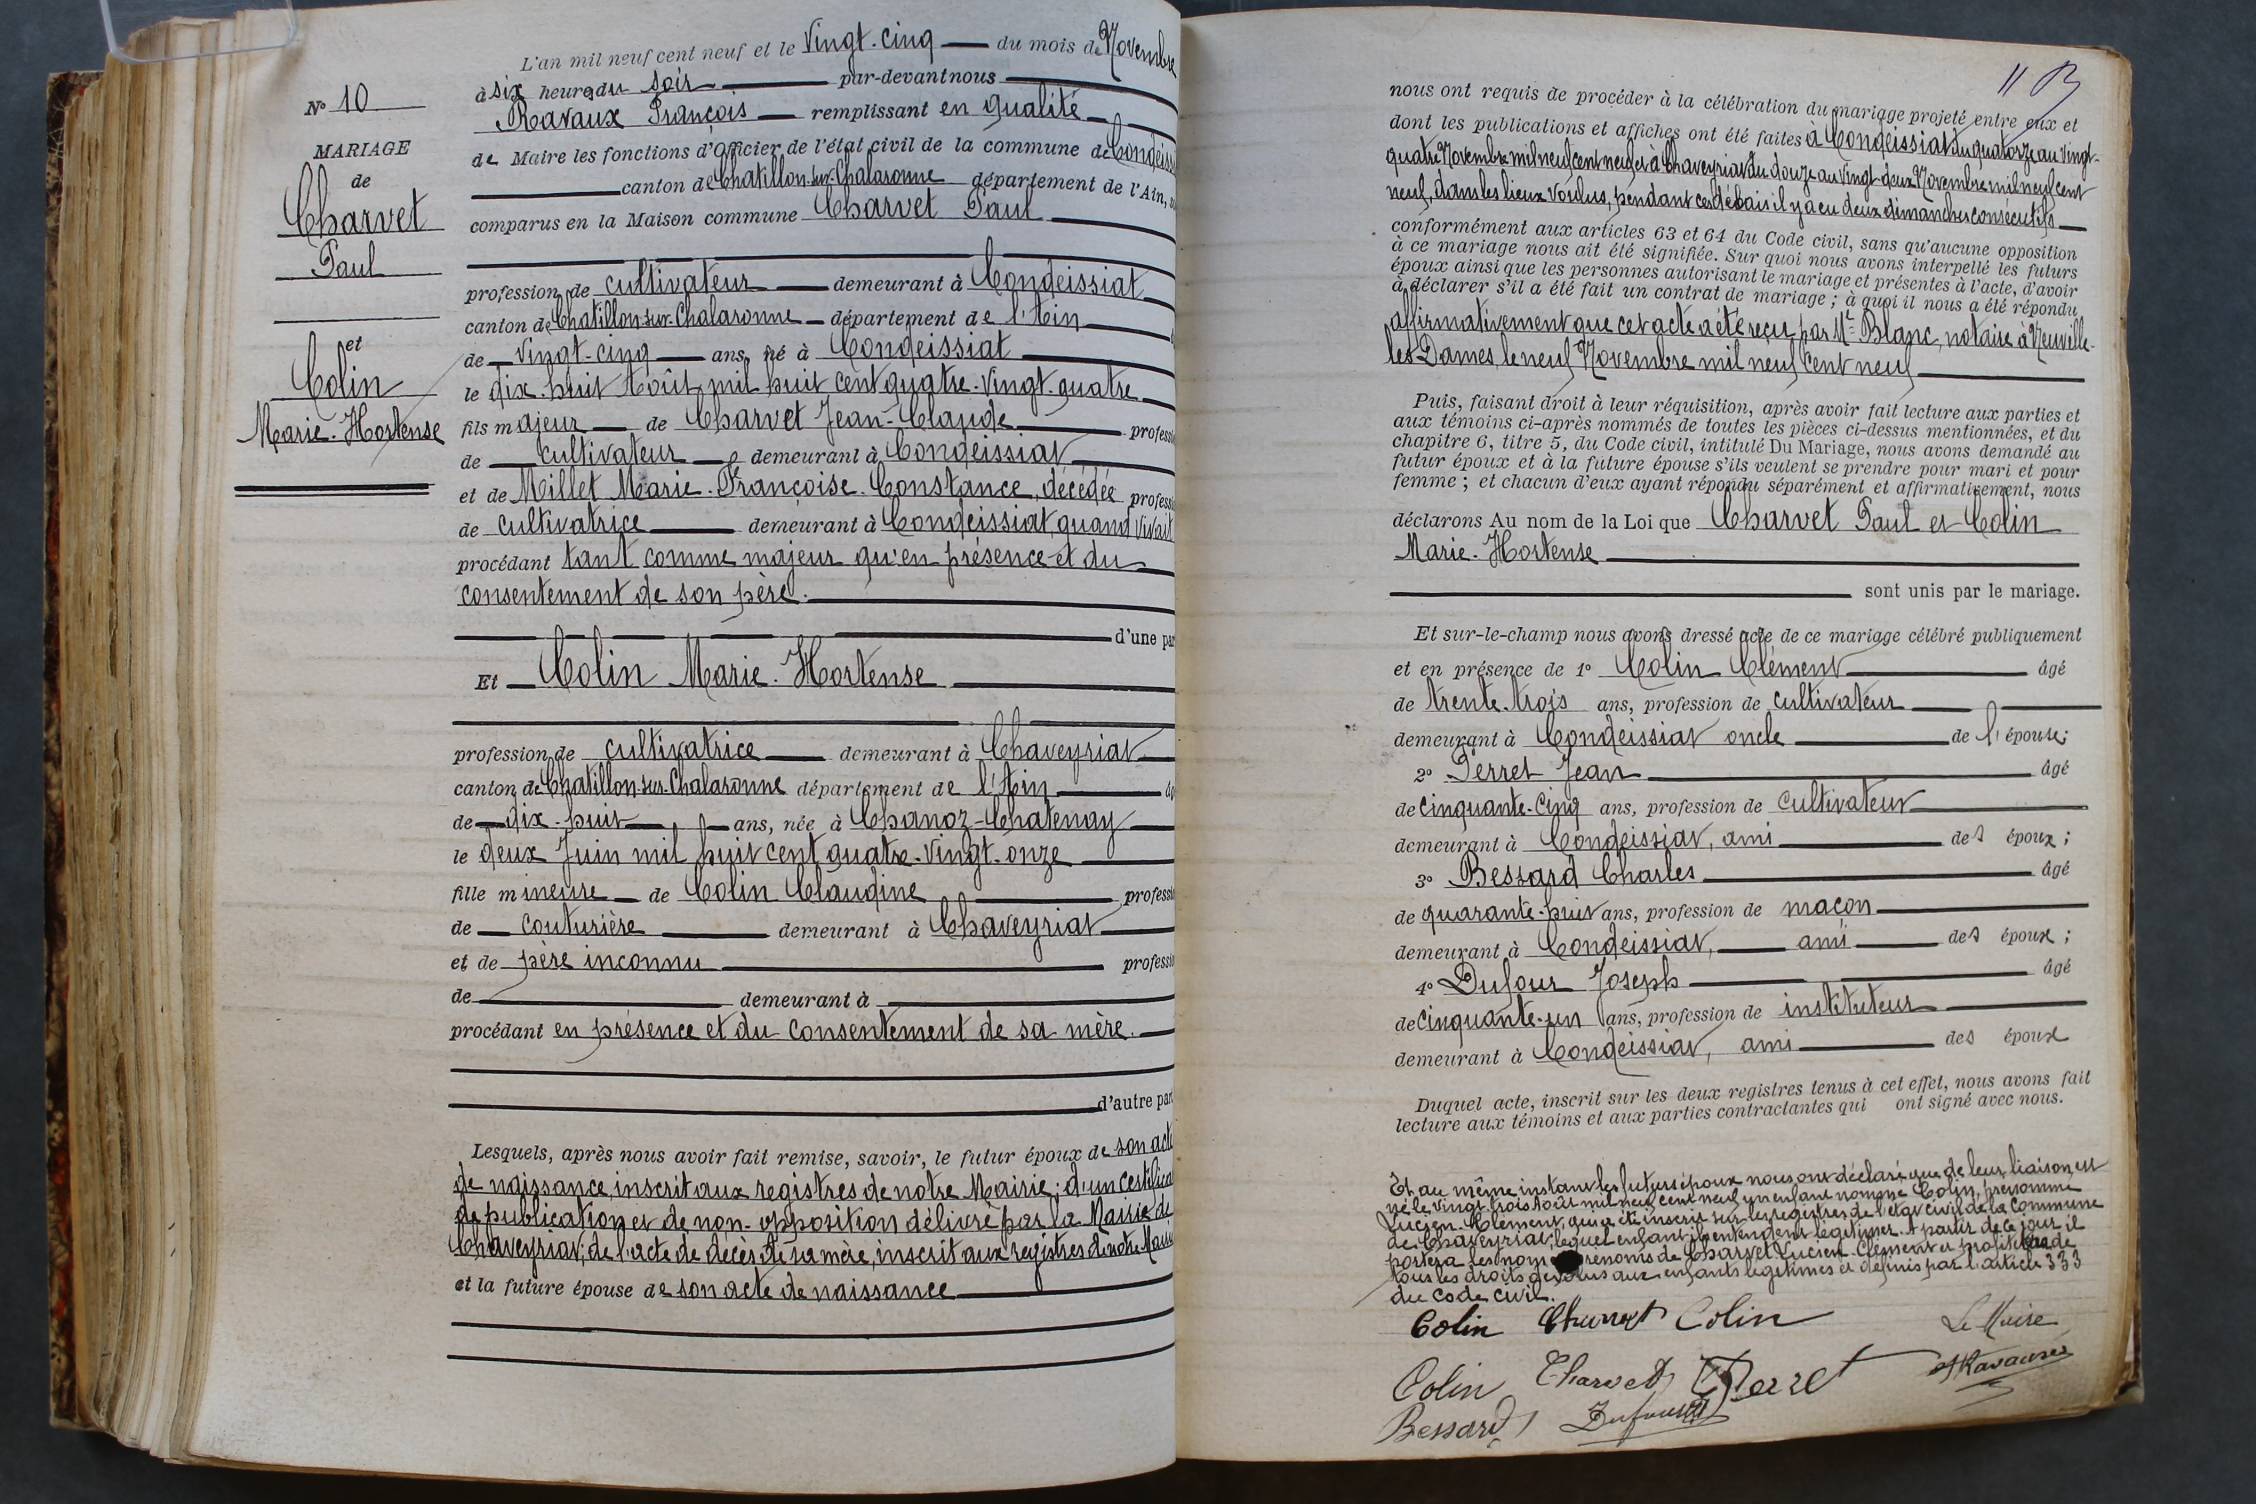 L'an mil neuf cent neuf et le Vingt-cinq du mois de Novembre
à six heures du soir par-devant nous
Ravaux François remplissant en qualité
de Maire les fonctions d'Officier de l'état civil de la commune de Condeiss
canton de Chatillon-sur-Chalaronne département de l'Ain,
comparus en la Maison commune Charvet Paul
profession de cultivateur demeurant à Condeissiat
canton de Chatillon-sur-Chalaronne département de l'Ain
de vingt-cinq ans, né à Condeissiat
le dix-huit Août mil huit cent quatre-vingt-quatre
fils majeur de Charvet Jean-Claude professi
de cultivateur demeurant à Condeissiat
et de Millet Marie-Françoise-Constance, décédée professi
de cultivatrice demeurant à Condeissiat, quand vivait
procédant tant comme majeur qu'en présence et du
consentement de son père.
d'une par
Et Colin Marie-Hortense
profession de cultivatrice demeurant à Chaveyriat
canton de Chatillon-sur-Chalaronne département de l'Ain
de dix-huit ans, née à Chanoz-Chatenay
le deux Juin mil huit cent quatre-vingt-onze
fille mineure de Colin Claudine professi
de couturière demeurant à Chaveyriat
et de père inconnu professi
de demeurant à
procédant en présence et du consentement de sa mère.
d'autre part
Lesquels, après nous avoir fait remise, savoir, le futur époux de son acte
de naissance, inscrit aux registres de notre Mairie; d'un certificat
de publication et de non-opposition délivré par la Mairie de
Chaveyriat; de l'acte de décès de sa mère, inscrit aux registres de notre Mairie
et la future épouse de son acte de naissance
N° 10
MARIAGE
de
Charvet
Paul
et
Colin
Marie-Hortense
11
nous ont requis de procéder à la célébration du mariage projeté entre eux et
dont les publications et affiches ont été faites à Condeissiat du quatorze au vingt-
quatre Novembre mil neuf cent neuf et à Chaveyriat du douze au vingt-deux Novembre mil neuf cent
neuf, dans les lieux voulus, pendant ces délais il y a eu deux dimanches consécutifs
conformément aux articles 63 et 64 du Code civil, sans qu'aucune opposition
à ce mariage nous ait été signifiée. Sur quoi nous avons interpellé les futurs
époux ainsi que les personnes autorisant le mariage et présentes à l'acte, d'avoir
à déclarer s'il a été fait un contrat de mariage; à quoi il nous a été répondu
affirmativement que cet acte a été reçu par Me Blanc, notaire à Neuville-
les-Dames, le neuf Novembre mil neuf cent neuf
Puis, faisant droit à leur réquisition, après avoir fait lecture aux parties et
aux témoins ci-après nommés de toutes les pièces ci-dessus mentionnées, et du
chapitre 6, titre 5, du Code civil, intitulé Du Mariage, nous avons demandé au
futur époux et à la future épouse s'ils veulent se prendre pour mari et pour
femme; et chacun d'eux ayant répondu séparément et affirmativement, nous
déclarons Au nom de la Loi que Charvet Paul et Colin
Marie-Hortense
sont unis par le mariage.
Et sur-le-champ nous avons dressé acte de ce mariage célébré publiquement
et en présence de 1° Colin Clément âgé
de trente-trois ans, profession de cultivateur
demeurant à Condeissiat oncle de l'épouse;
2° Perret Jean âgé
de cinquante-cinq ans, profession de cultivateur
demeurant à Condeissiat, ami des époux;
3° Bessard Charles âgé
de quarante-huit ans, profession de maçon
demeurant à Condeissiat, ami des époux;
4° Dufour Joseph âgé
de cinquante-un ans, profession de instituteur
demeurant à Condeissiat, ami des époux
Duquel acte, inscrit sur les deux registres tenus à cet effet, nous avons fait
lecture aux témoins et aux parties contractantes qui ont signé avec nous.
Et au même instant les futurs époux nous ont déclaré que de leur liaison est
né le vingt trois Août mil neuf cent neuf un enfant nommé Colin, prénommé
Lucien-Clément, qui a été inscrit sur les registres de l'état civil de la commune
de Chaveyriat, lequel enfant ils entendent légitimer. A partir de ce jour il
portera les nom prénoms de Charvet Lucien-Clément et profitera de
tous les droits dévolus aux enfants légitimes et définis par l'article 333
du code civil.
Colin Charvet Colin Le Maire
Colin Charvet Perret Ravaux
Bessard Dufour